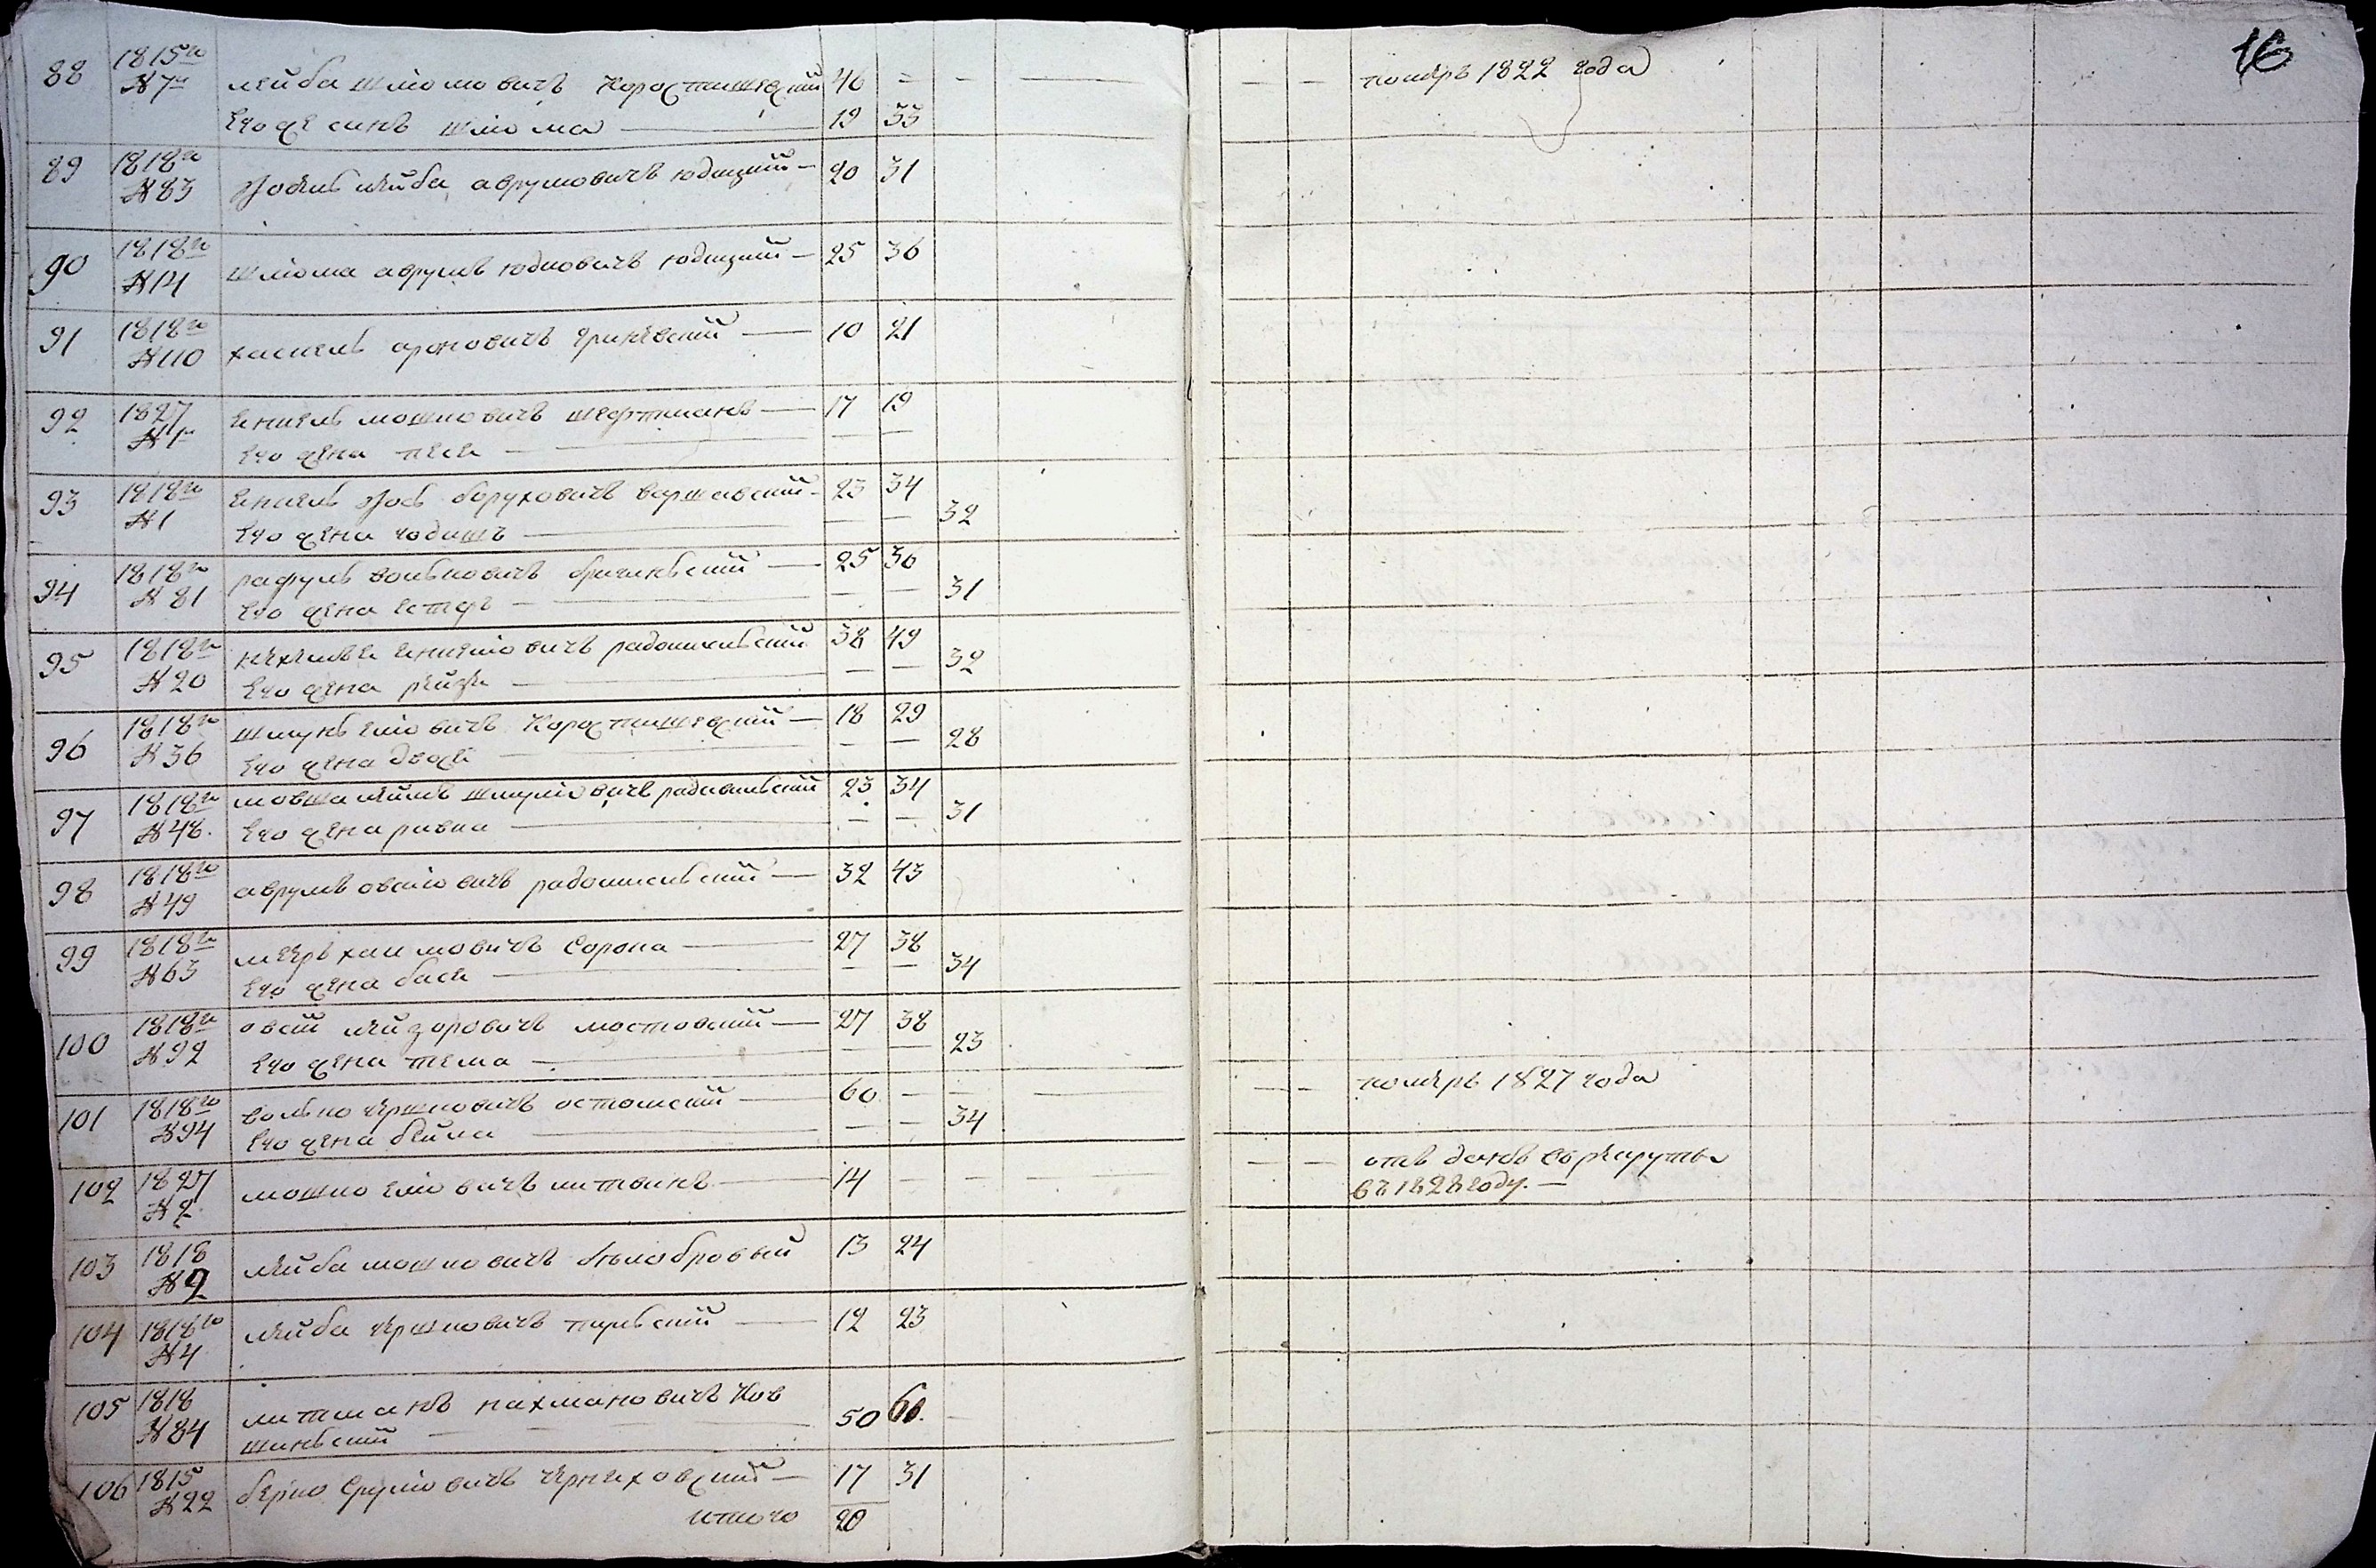 16
88 1815го № 7й лейба шліомовичъ Коростишевскій 46 = - — — — померъ 1822 года
его же синъ шліома — 19 33
89 1818го № 83 іосель лейба аврумовичъ юдицкій — 20 31
90 1818го № 14 шліома аврумъ юдковичъ юдицкій — 25 36
91 1818го № 110 хаскель ароновичъ гриневскій — 10 21
92 1827 № 1й енкель мошковичъ шефтманъ — 17 19
его жена песе — — —
93 1818го № 1 енкель іось боруховичъ варшавскій — 23 34
его жена годишъ — — — 32
94 1818го № 81 рафулъ волковичъ — 25 36
его жена естфг — — — 31
95 1818го № 20 нехемъе енкеліовичъ радомисльскій 38 49
его жена рейзе — — — 32
96 1818го № 36 шмунь еліовичъ Коростишевскій — 18 29
его жена двося — — — 28
97 1818го № 48. мовша лейбъ шмуліовичъ радомисльскій 23 34
его жена ривка — — — 31
98 1818го № 49 аврумъ овсіовичъ радомисльскій — 32 43
99 1818го № 63 мееръ хаимовичъ Сорока — 27 38
его жена бася — — — 34
100 1818го № 92 овсій лейзоровичъ мостовскій — 27 38
его жена тема — — — 23
101 1818го № 94 волько гершковичъ — 60 — — — — — померъ 1827 года
его жена бейла — — — 34
102 1827 № 2 мошко еліовичъ литвинъ — 14 — — — — — отъ данъ въ рекруты
въ 1828 году. —
103 1818 № 9 лейба мошковичъ бълобровый 13 24
104 1818го № 4 лейба гершковичъ — 12 23
105 1818 № 84 литманъ нахмановичъ Ков
шинскій — 50 60.
106 1815 № 22 берко Сруліовичъ черняховскій — 17 31
итого 20